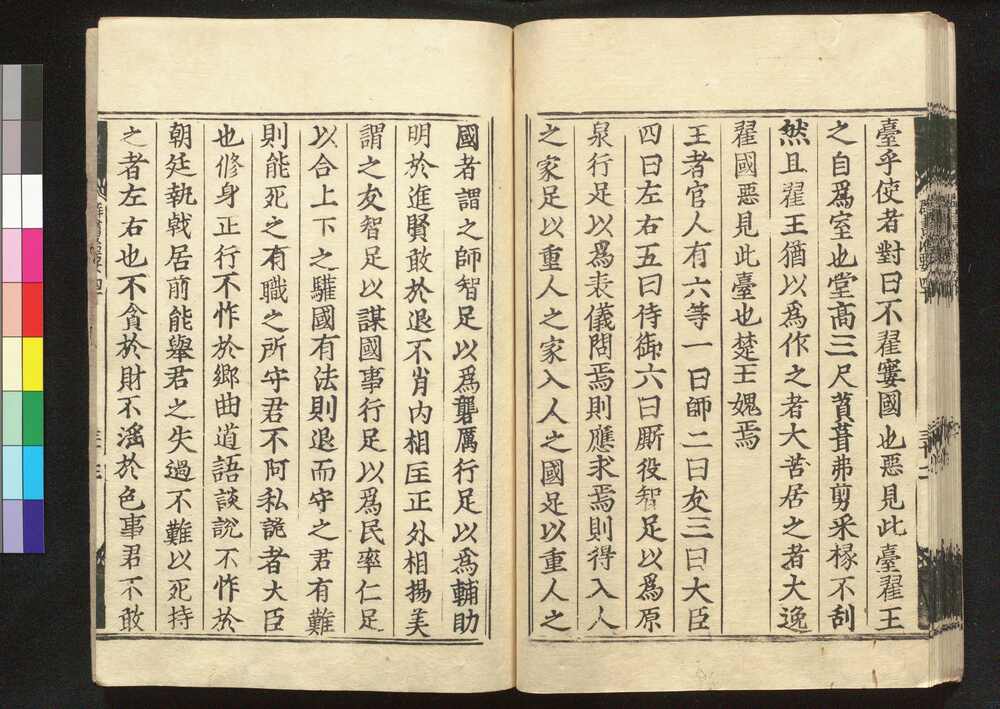 臺乎使者對曰不翟窶國也惡見此臺翟王
之自爲室也堂高三尺茛葺弗剪采椽不刮
然且翟王猶以爲作之者大苦居之者大逸
翟國惡見此臺也楚王媿焉
王者官人有六等一曰師二曰友三曰大臣
四曰左右五曰待御六曰厮役智足以爲原
泉行足以爲表儀問焉則應求焉則得入人
之家足以重人之家入人之國足以重人之
國者謂之師智足以爲礱厲行足以爲輔助
明於進賢敢於退不肖內相匡正外相揚美
謂之友智足以謀國事行足以爲民率仁足
以合上下之驩國有法則退而守之君有難
則能死之有職之所守君不阿私詭者大臣
也修身正行不怍於鄉曲道語談說不怍於
朝廷執戟居前能舉君之失過不難以死持
之者左右也不貪於財不滛於色事君不敢
群書治要四十